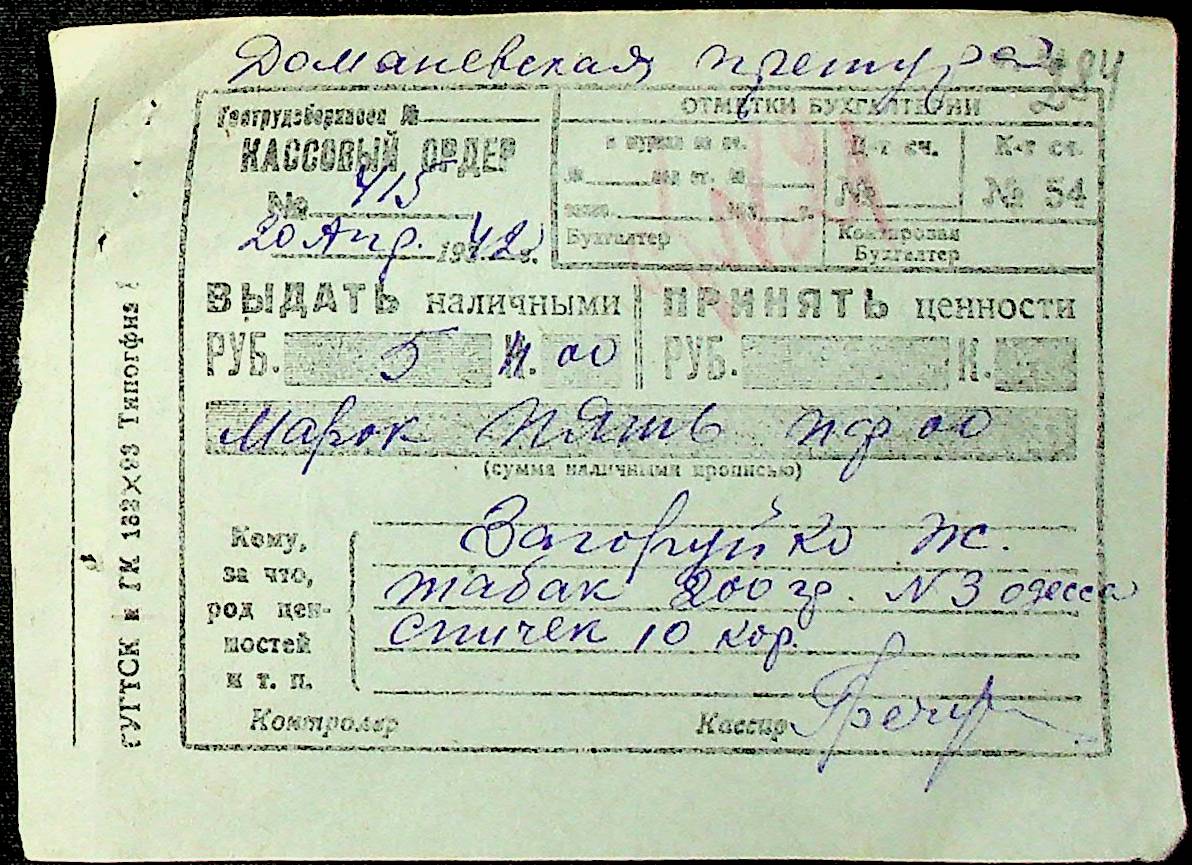 Доманевская претура
284
Гострудсберкасса №
КАССОВЫЙ ОРДЕР
№ 415
20 Апр. 1942 г.
ОТМЕТКИ БУХГАЛТЕРИИ
№
Д-т сч.
№
К-т сч.
№ 54
Бухгалтер
Контировал
Бухгалтер
ВЫДАТЬ наличными
ПРИНЯТЬ ценности
РУБ. 5 К. 00
РУБ. К.
Марок пять пф 00
(сумма наличными прописью)
Кому,
за что,
род цен-
ностей
и т. п.
Загоруйко Ж.
табак 200 гр. N 3 одесса
спичек 10 кор.
Контролер
Кассир
ГУГТСК и ГК 132×93 Типогфия